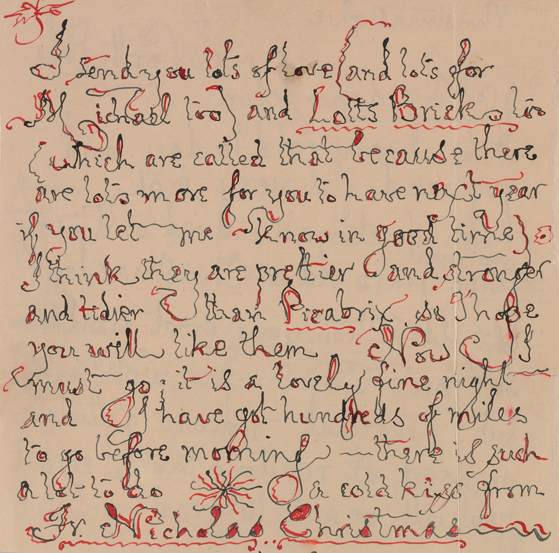 I send you lots of love (and lots for
Michael too) and Lotts Bricks too
(which are called that because there
are lots more for you to have next year
if you let me know in good time)
I think they are prettier and stronger
and tidier than Picabrix. So I hope
you will like them. Now I
must go: it is a lovely fine night
and I have got hundreds of miles
to go before morning — there is such
a lot to do
a cold kiss from
Fr. Nicholas Christmas